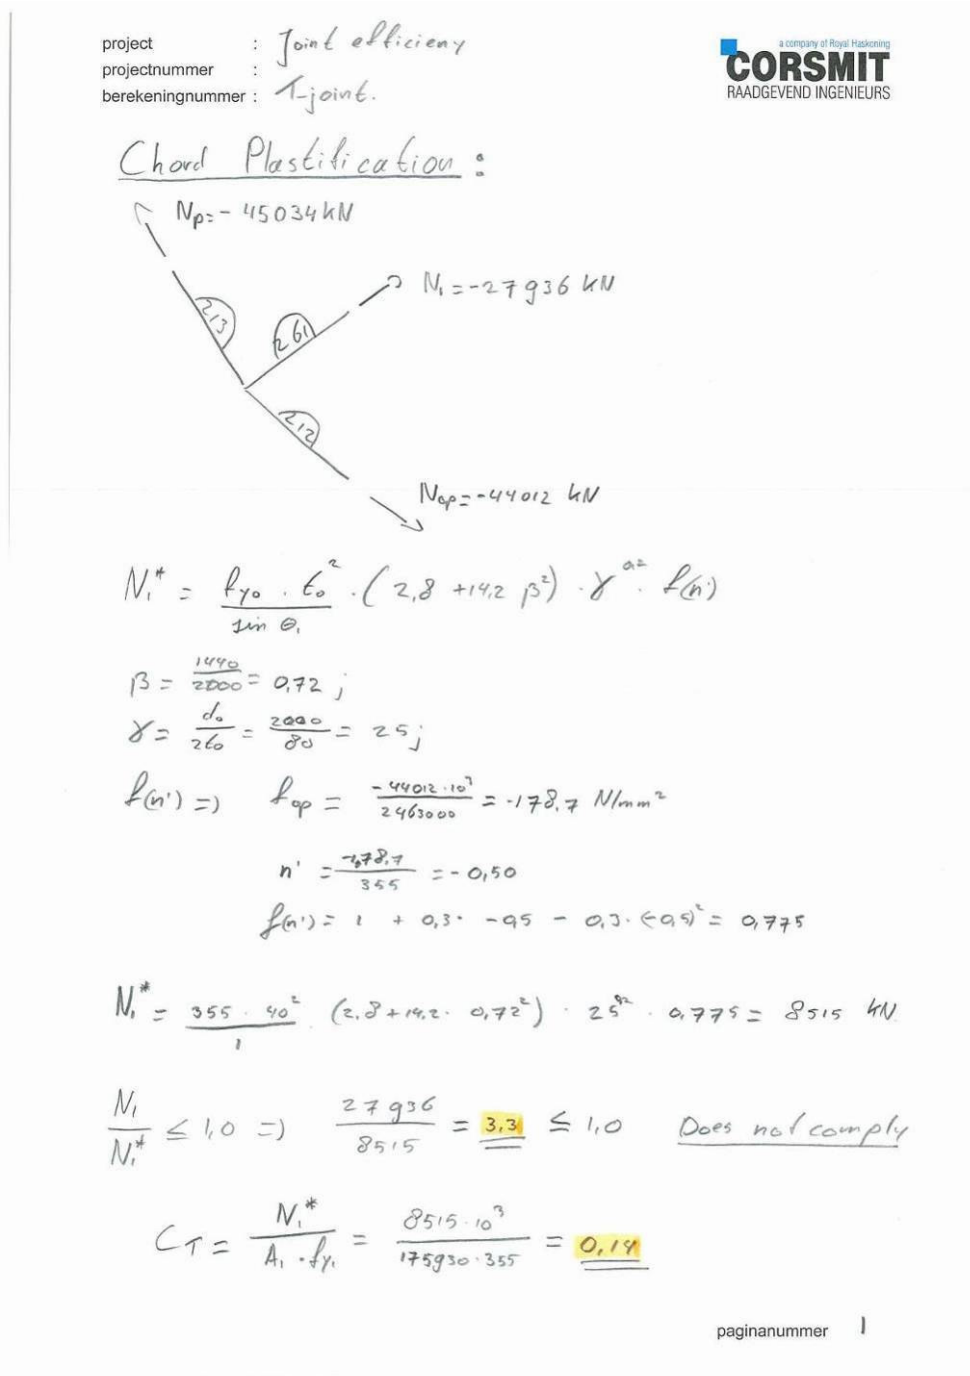 project : Joint efficieny
projectnummer :
berekeningnummer : T-joint.
a company of Royal Haskoning
CORSMIT
RAADGEVEND INGENIEURS
Chord Plastification :
Np=- 45034 kN
N₁ =-27936 kN
213
261
212
Nop=-44012 kN
N₁* = fy₀ · t₀² / sin θ₁ · (2,8 +14,2 β²) · γ^0,2 · f(n')
β = 1440/2000 = 0,72 ;
γ = d₀/2t₀ = 2000/80 = 25 ;
f(n') => fop = -44012·10³/2463000 = -178,7 N/mm²
n' = -178,7/355 = - 0,50
f(n') = 1 + 0,3 · -0,5 - 0,3 · (-0,5)² = 0,775
N₁* = 355 · 40² / 1 (2,8+14,2 · 0,72²) · 25^0,2 · 0,775 = 8515 kN
N₁/N₁* ≤ 1,0 => 27936/8515 = 3,3 ≤ 1,0 Does not comply
CT = N₁* / A₁ · fy₁ = 8515·10³ / 175930·355 = 0,14
paginanummer 1